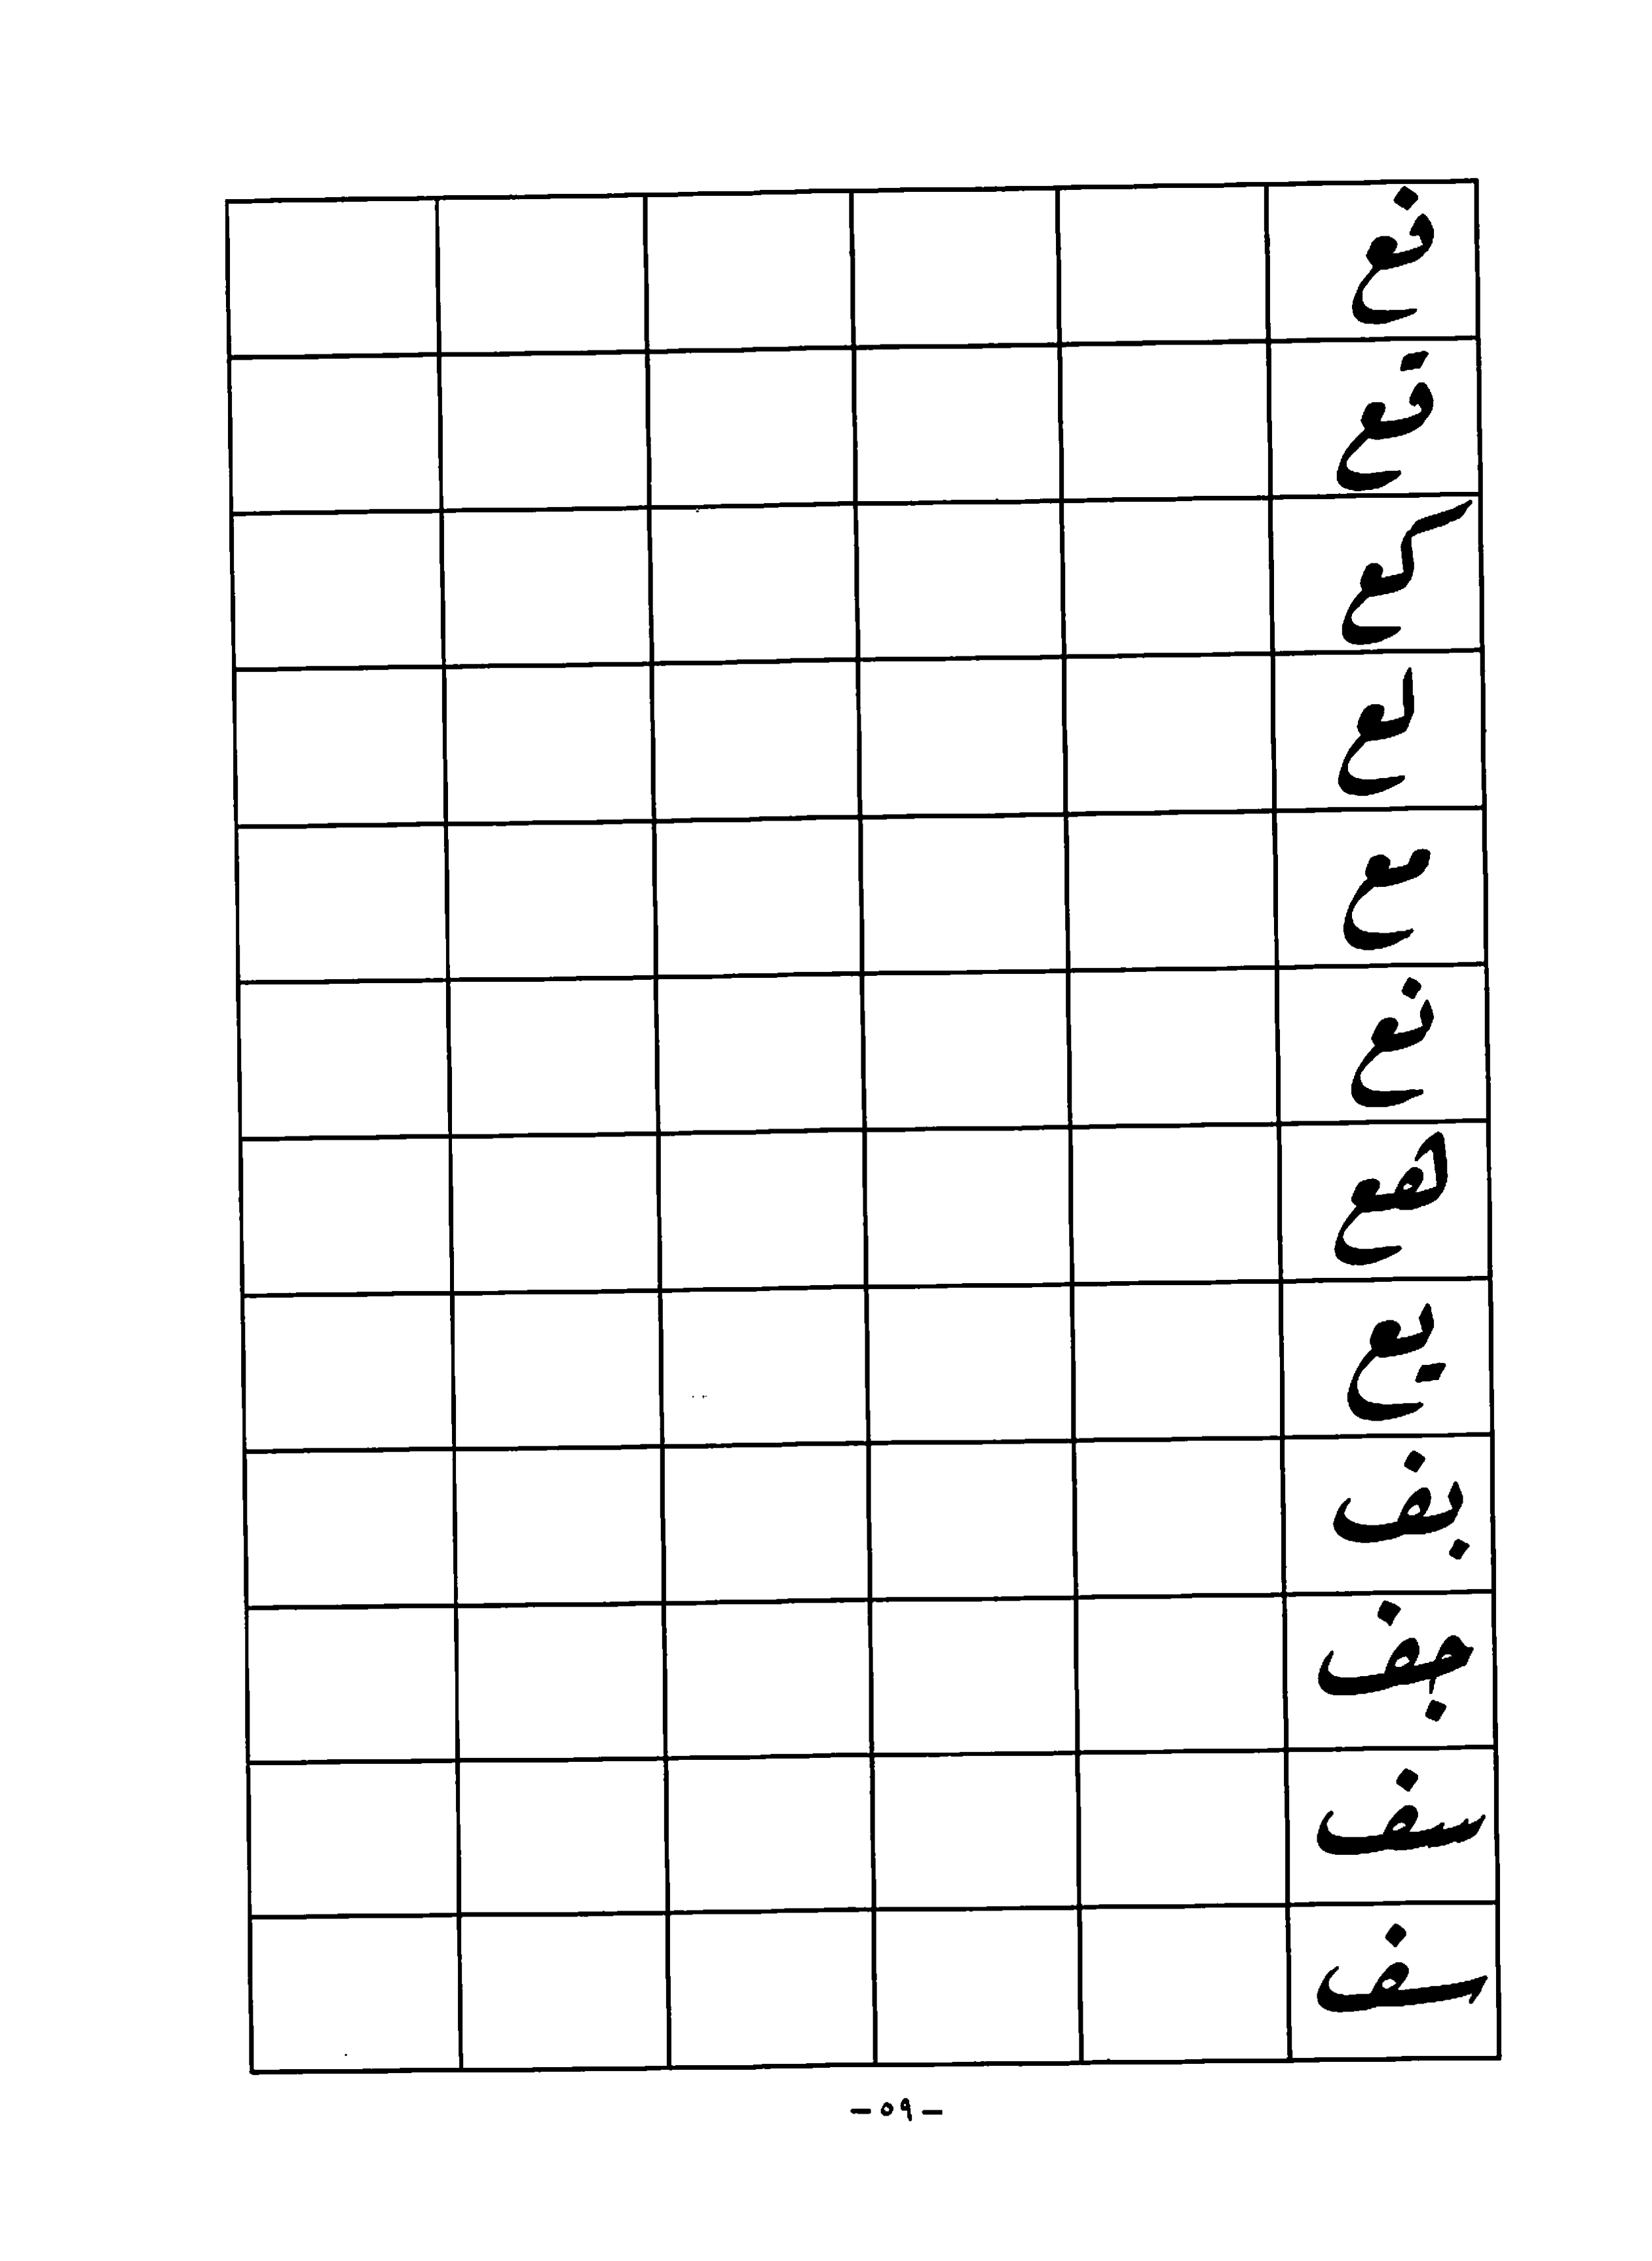 فع
قع
كع
لع
مع
نع
هع
يع
بف
جف
سف
سف
- ٥٩ -